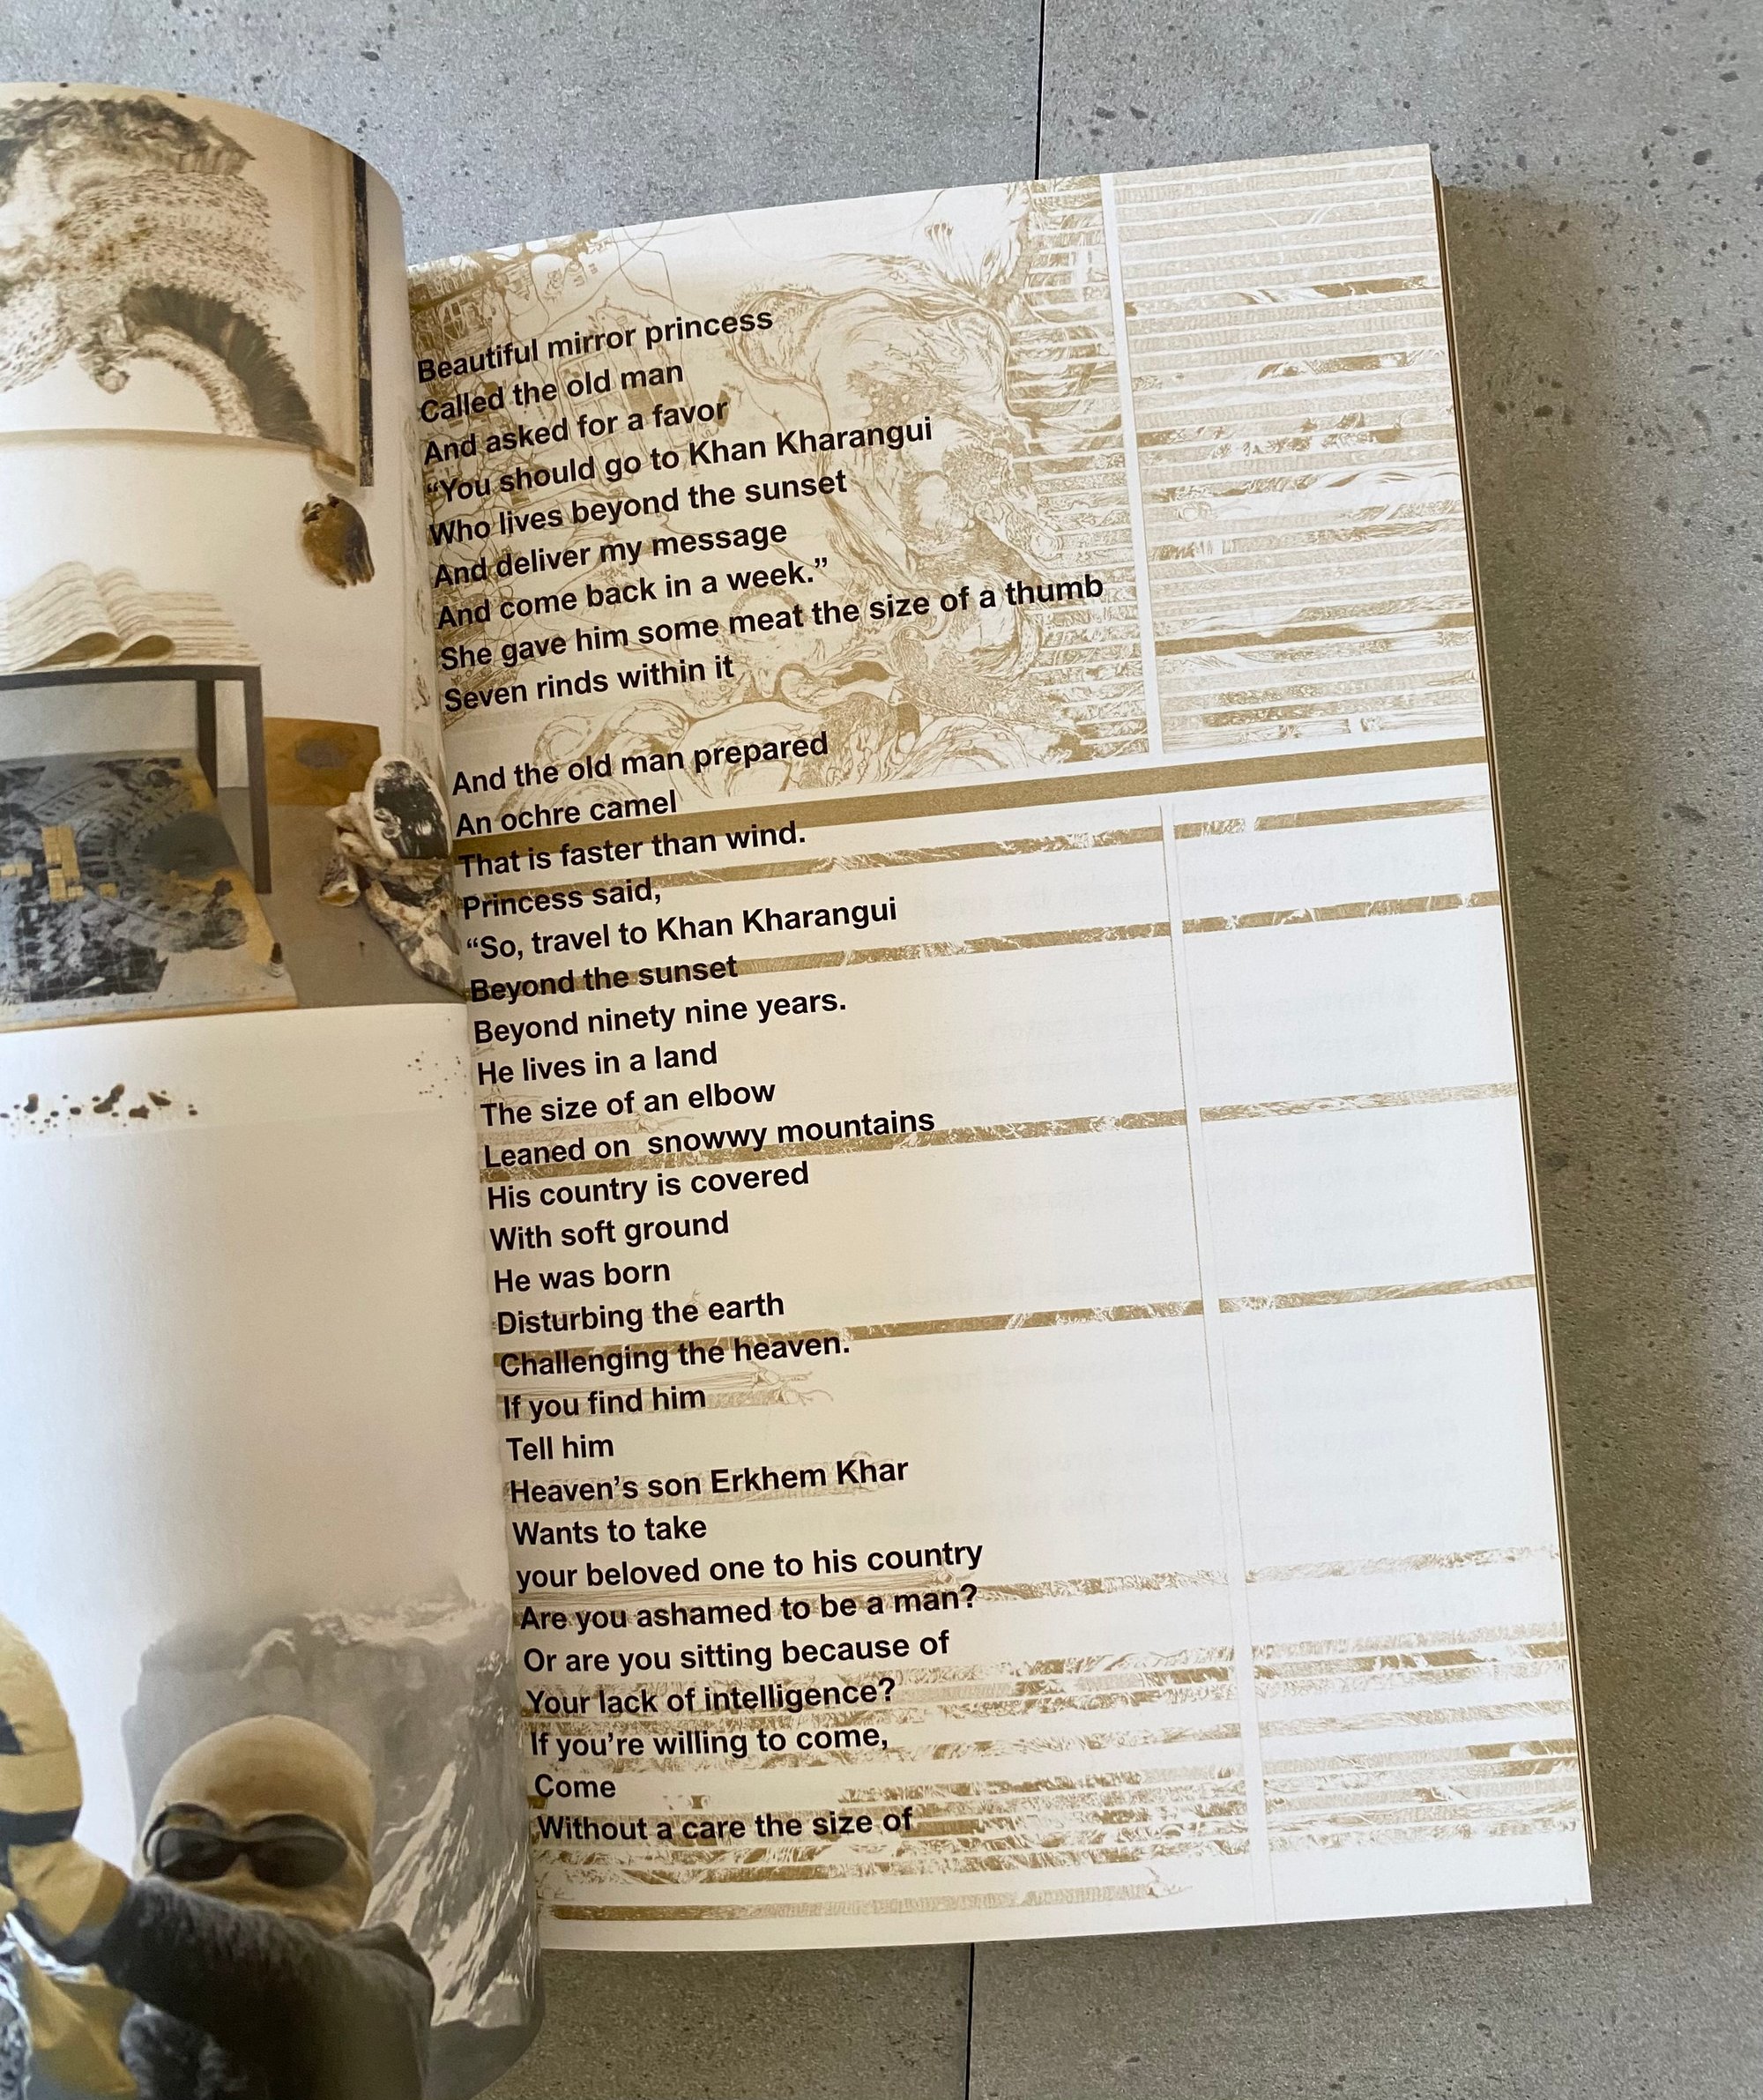 Beautiful mirror princess
Called the old man
And asked for a favor
“You should go to Khan Kharangui
Who lives beyond the sunset
And deliver my message
And come back in a week.”
She gave him some meat the size of a thumb
Seven rinds within it
And the old man prepared
An ochre camel
That is faster than wind.
Princess said,
“So, travel to Khan Kharangui
Beyond the sunset
Beyond ninety nine years.
He lives in a land
The size of an elbow
Leaned on  snowwy mountains
His country is covered
With soft ground
He was born
Disturbing the earth
Challenging the heaven.
If you find him
Tell him
Heaven’s son Erkhem Khar
Wants to take
your beloved one to his country
Are you ashamed to be a man?
Or are you sitting because of
Your lack of intelligence?
If you’re willing to come,
Come
Without a care the size of